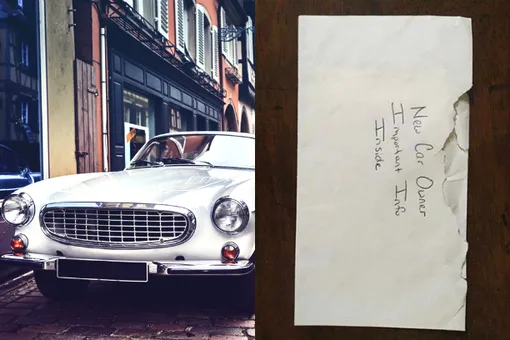 New Car Owner
Important Info
Inside